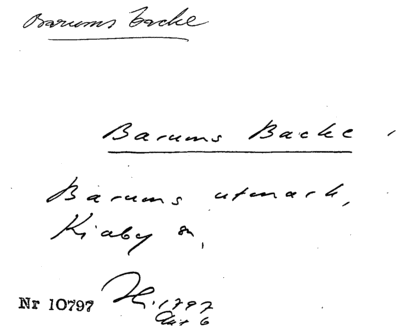 Barums backe
Barums Backe,
Barums utmark,
Kiaby sn,
Nr 10797 H. 1797
Akt 6